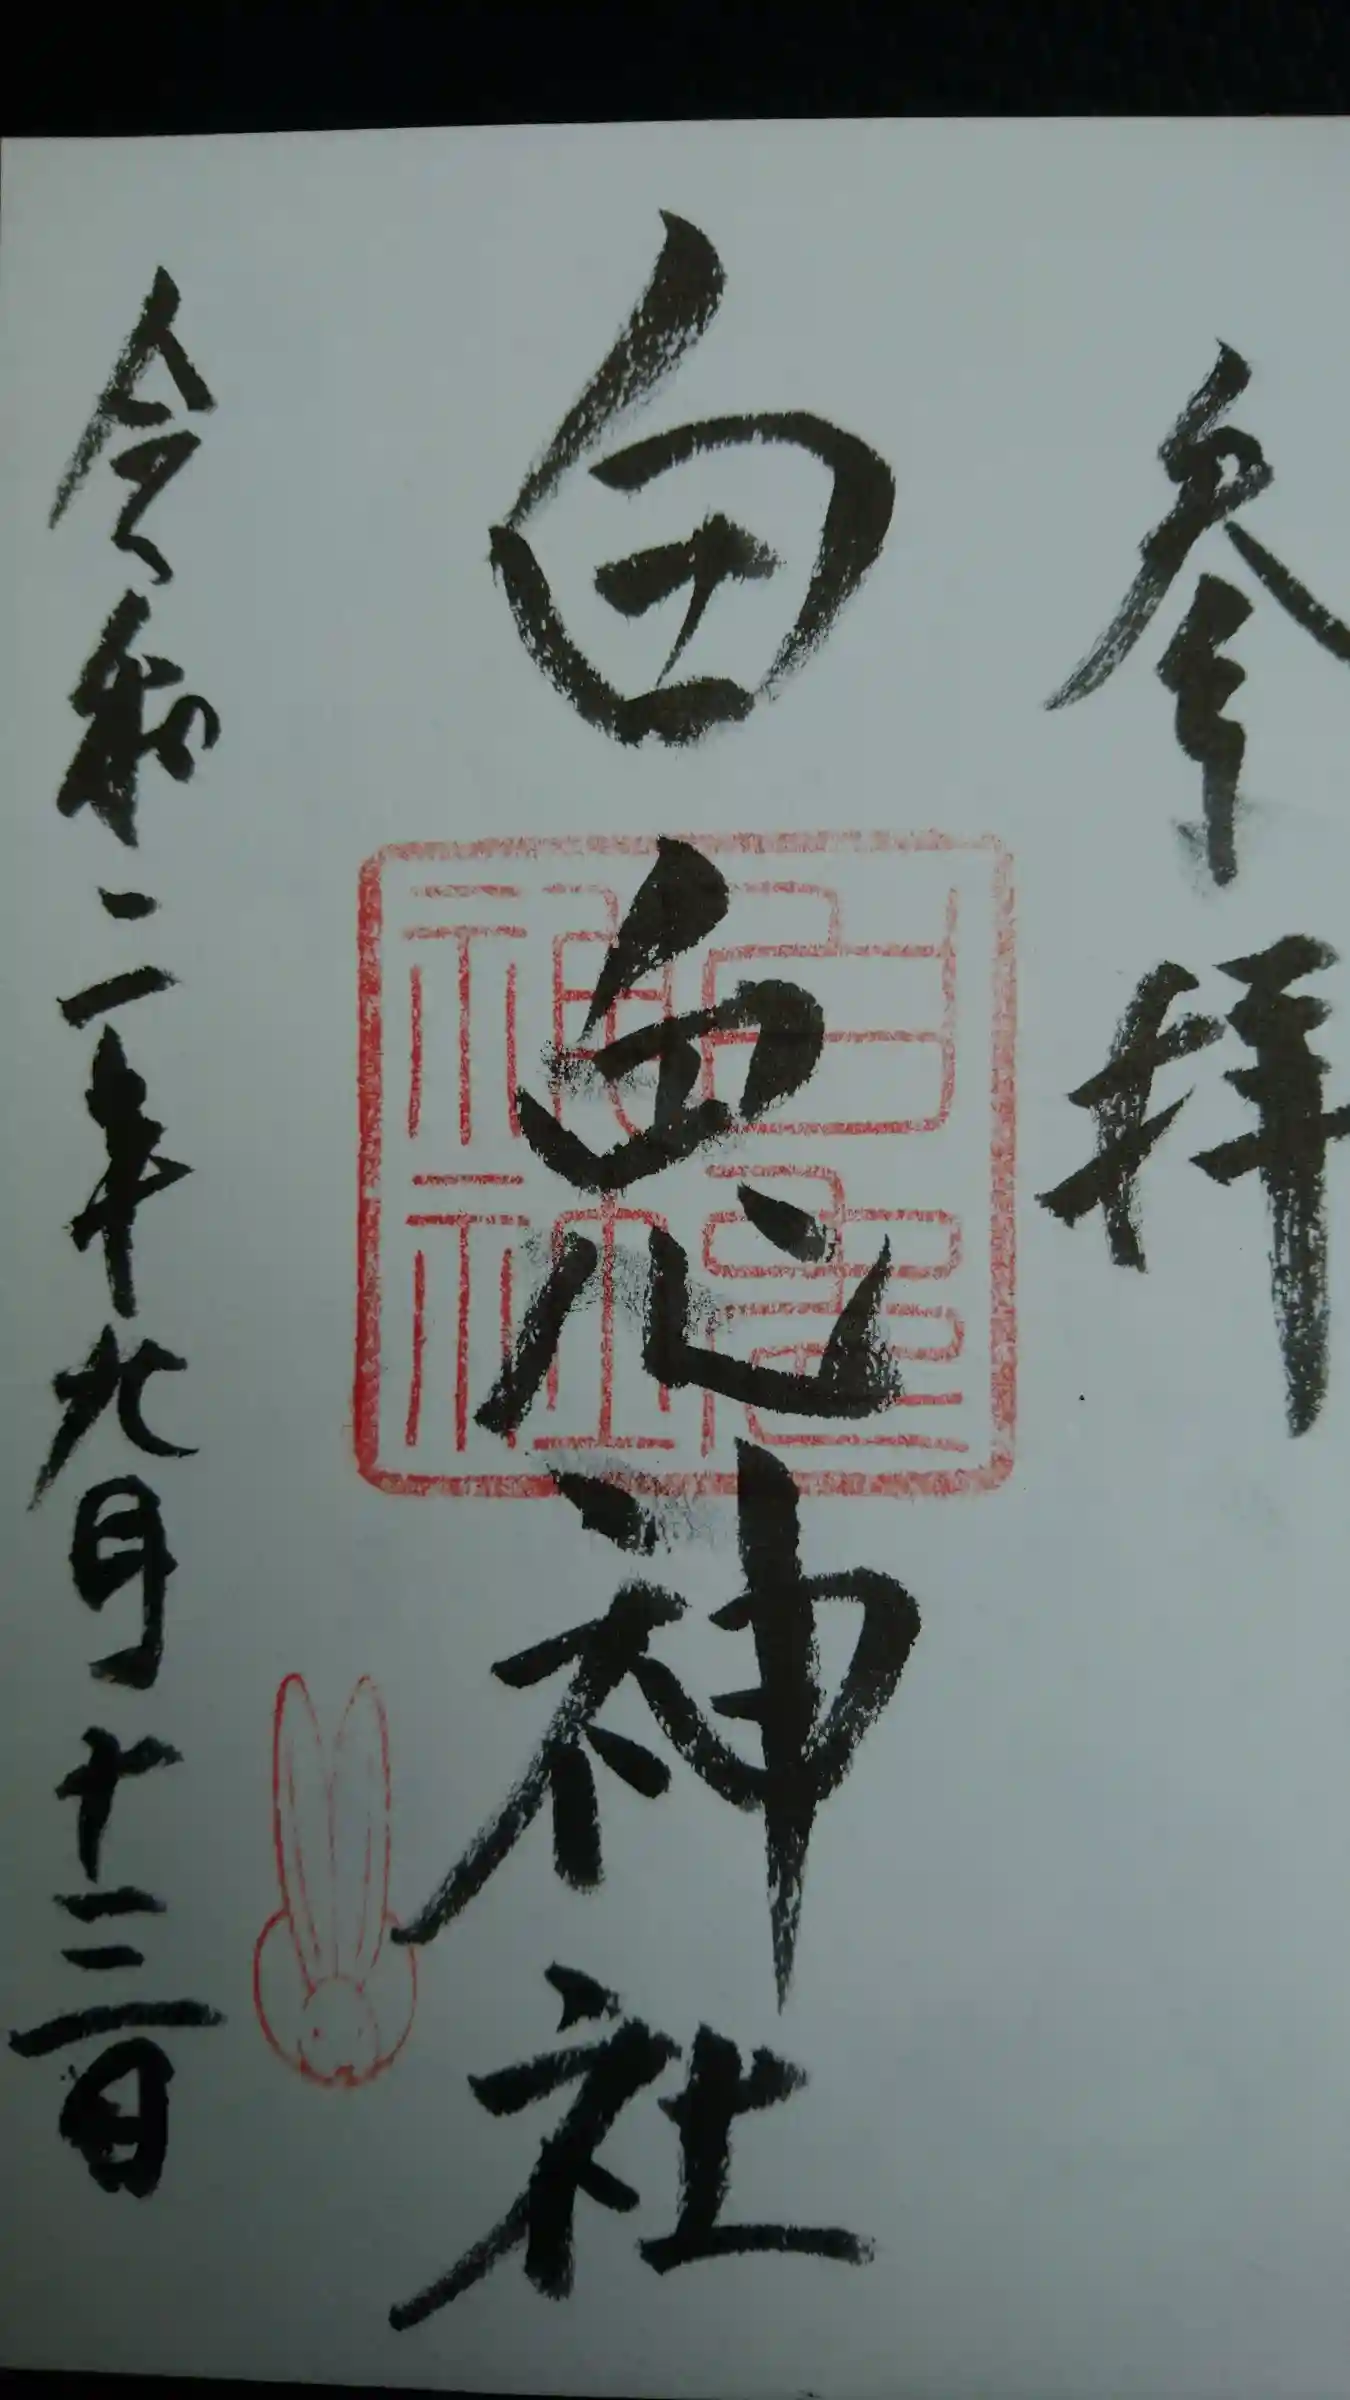 奉拝
白兎神社
白兎
神社
令和二年九月十三日